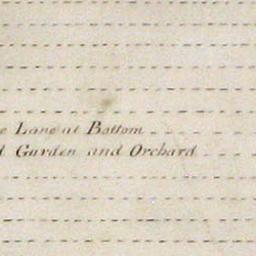 e Lane at Bottom
d Garden and Orchard